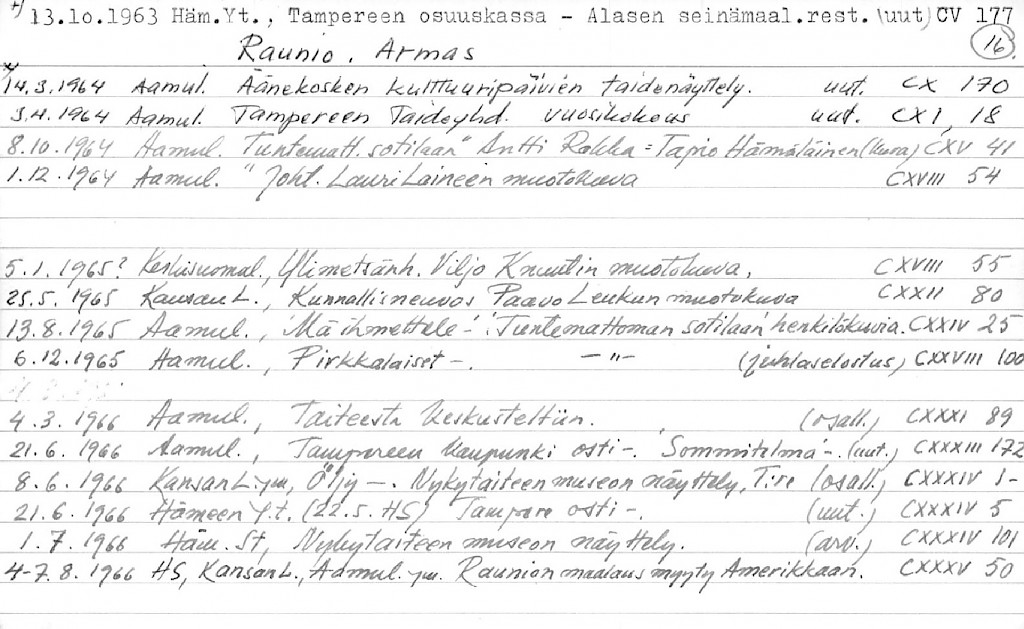 +/ 13.10.1963 Häm.Yt., Tampereen osuuskassa - Alasen seinämaal.rest. (uut) CV 177
Raunio, Armas 16.
14.3.1964 Aamul. Äänekosken kulttuuripäivien taidenäyttely. uut. CX 170
3.4.1964 Aamul. Tampereen Taideyhd. vuosikokous uut. CXI, 18
8.10.1964 Aamul. Tuntematt. sotilaan" Antti Rokka = Tapio Hämäläinen (kuva) CXV 41
1.12.1964 Aamul. " Joht. Lauri Laineen muotokuva CXVIII 54
5.1.1965? Keskisuomal., Ylimetsänh. Viljo Knuutin muotokuva, CXVIII 55
25.5.1965 Kansan L., Kunnallisneuvos Paavo Leukun muotokuva CXXII 80
13.8.1965 Aamul., 'Mä ihmettele-' 'Tuntemattoman sotilaan' henkilökuvia. CXXIV 25
6.12.1965 Aamul., Pirkkalaiset -. -"- (juhlaselostus) CXXVIII 100
4.3.1966 Aamul., Taiteesta keskusteltiin. (osall.) CXXXI 89
21.6.1966 Aamul., Tampereen kaupunki osti -. 'Sommitelma'-. (uut.) CXXXIII 172
8.6.1966 Kansan L. ym, Öljy -. Nykytaiteen museon näyttely, T:re (osall.) CXXXIV 1-
21.6.1966 Hämeen Y.t. (22.5. HS) Tampere osti -. (uut.) CXXXIV 5
1.7.1966 Häm. St, Nykytaiteen museon näyttely. (arv.) CXXXIV 101
4-7.8.1966 HS, Kansan L., Aamul. ym. Raunion maalaus myyty Amerikkaan. CXXXV 50